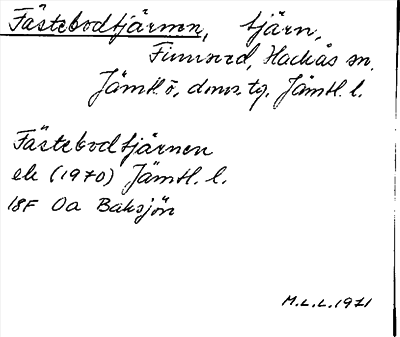 Fästebodtjärnen, tjärn,
Hackås sn,
Jämtl. ö. dmsg tg, Jämtl. l.
Fästebodtjärnen
ek (1970) Jämtl. l.
18F 0a Baksjön
M.L.L. 1971